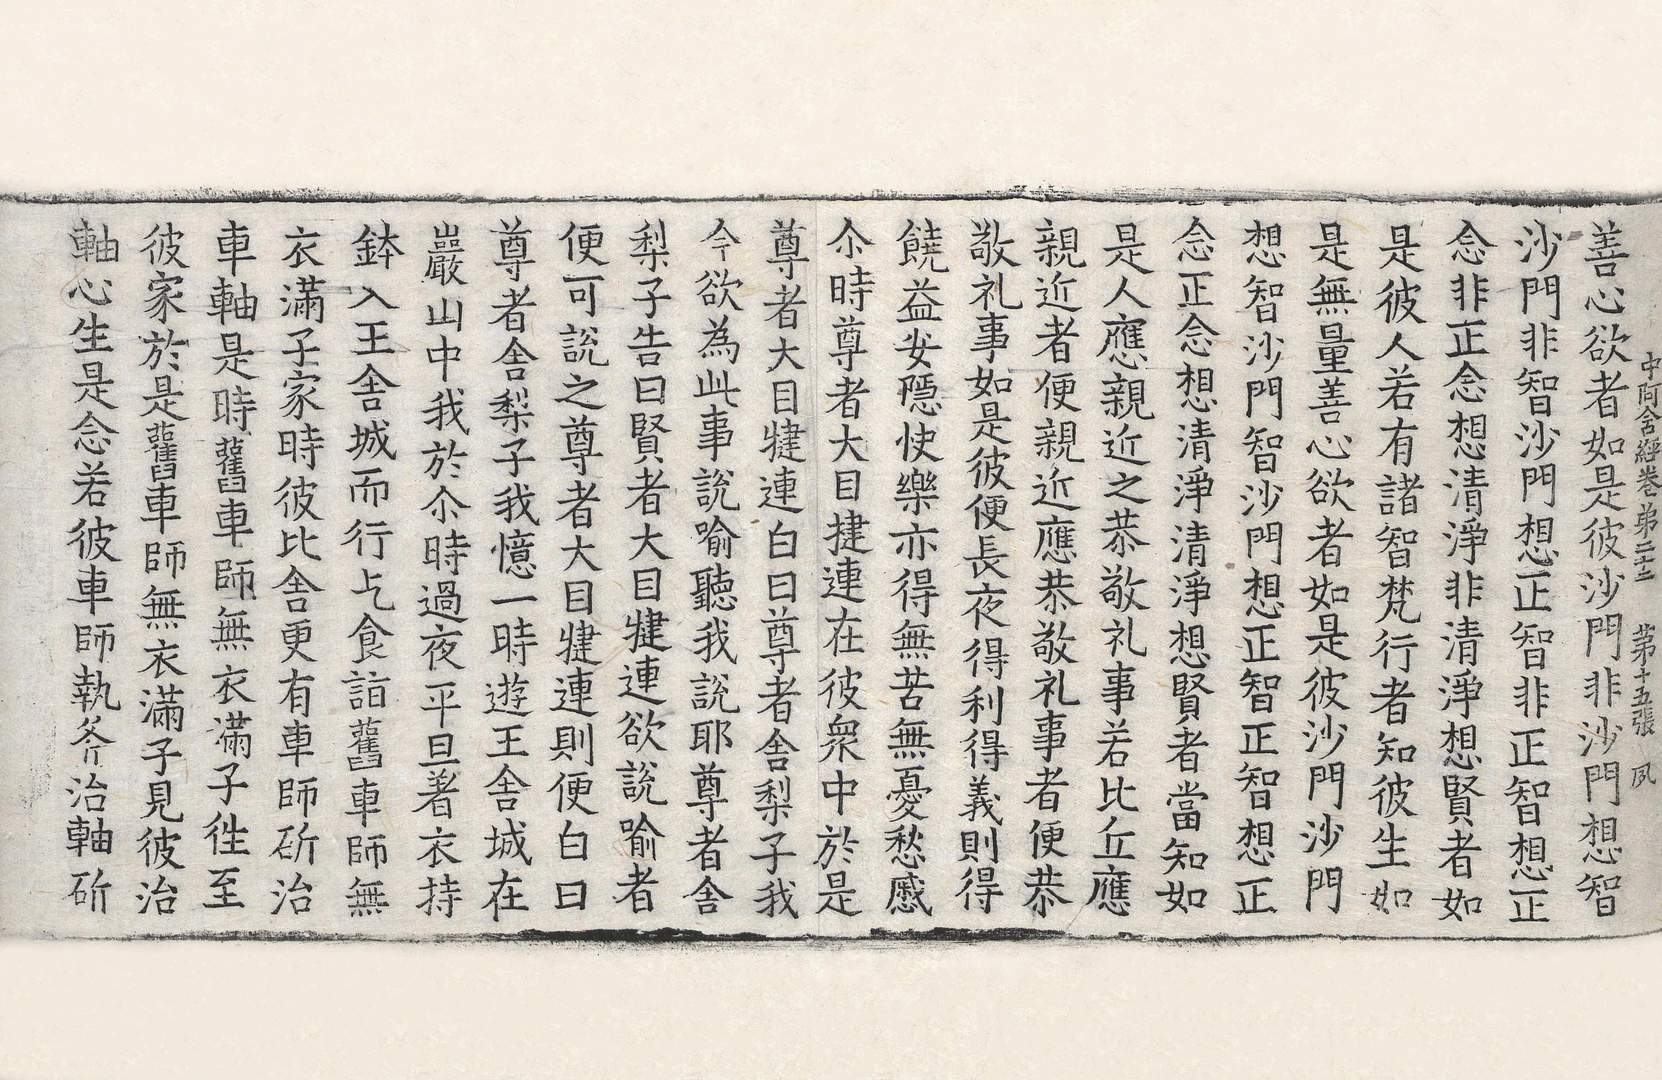 中阿含經卷第二十二 第十五張 夙
善心欲者如是彼沙門非沙門想智
沙門非智沙門想正智非正智想正
念非正念想清淨非清淨想賢者如
是彼人若有諸智梵行者知彼生如
是無量善心欲者如是彼沙門沙門
想智沙門智沙門想正智正智想正
念正念想清淨清淨想賢者當知如
是人應親近之恭敬礼事若比丘應
親近者便親近應恭敬礼事者便恭
敬礼事如是彼便長夜得利得義則得
饒益安隱快樂亦得無苦無憂愁慼
尒時尊者大目揵連在彼眾中於是
尊者大目犍連白曰尊者舍梨子我
今欲為此事說喻聽我說耶尊者舍
梨子告曰賢者大目犍連欲說喻者
便可說之尊者大目犍連則便白曰
尊者舍梨子我憶一時遊王舍城在
巖山中我於尒時過夜平旦著衣持
鉢入王舍城而行乞食詣舊車師無
衣滿子家時彼比舍更有車師斫治
車軸是時舊車師無衣滿子徃至
彼家於是舊車師無衣滿子見彼治
軸心生是念若彼車師執斧治軸斫